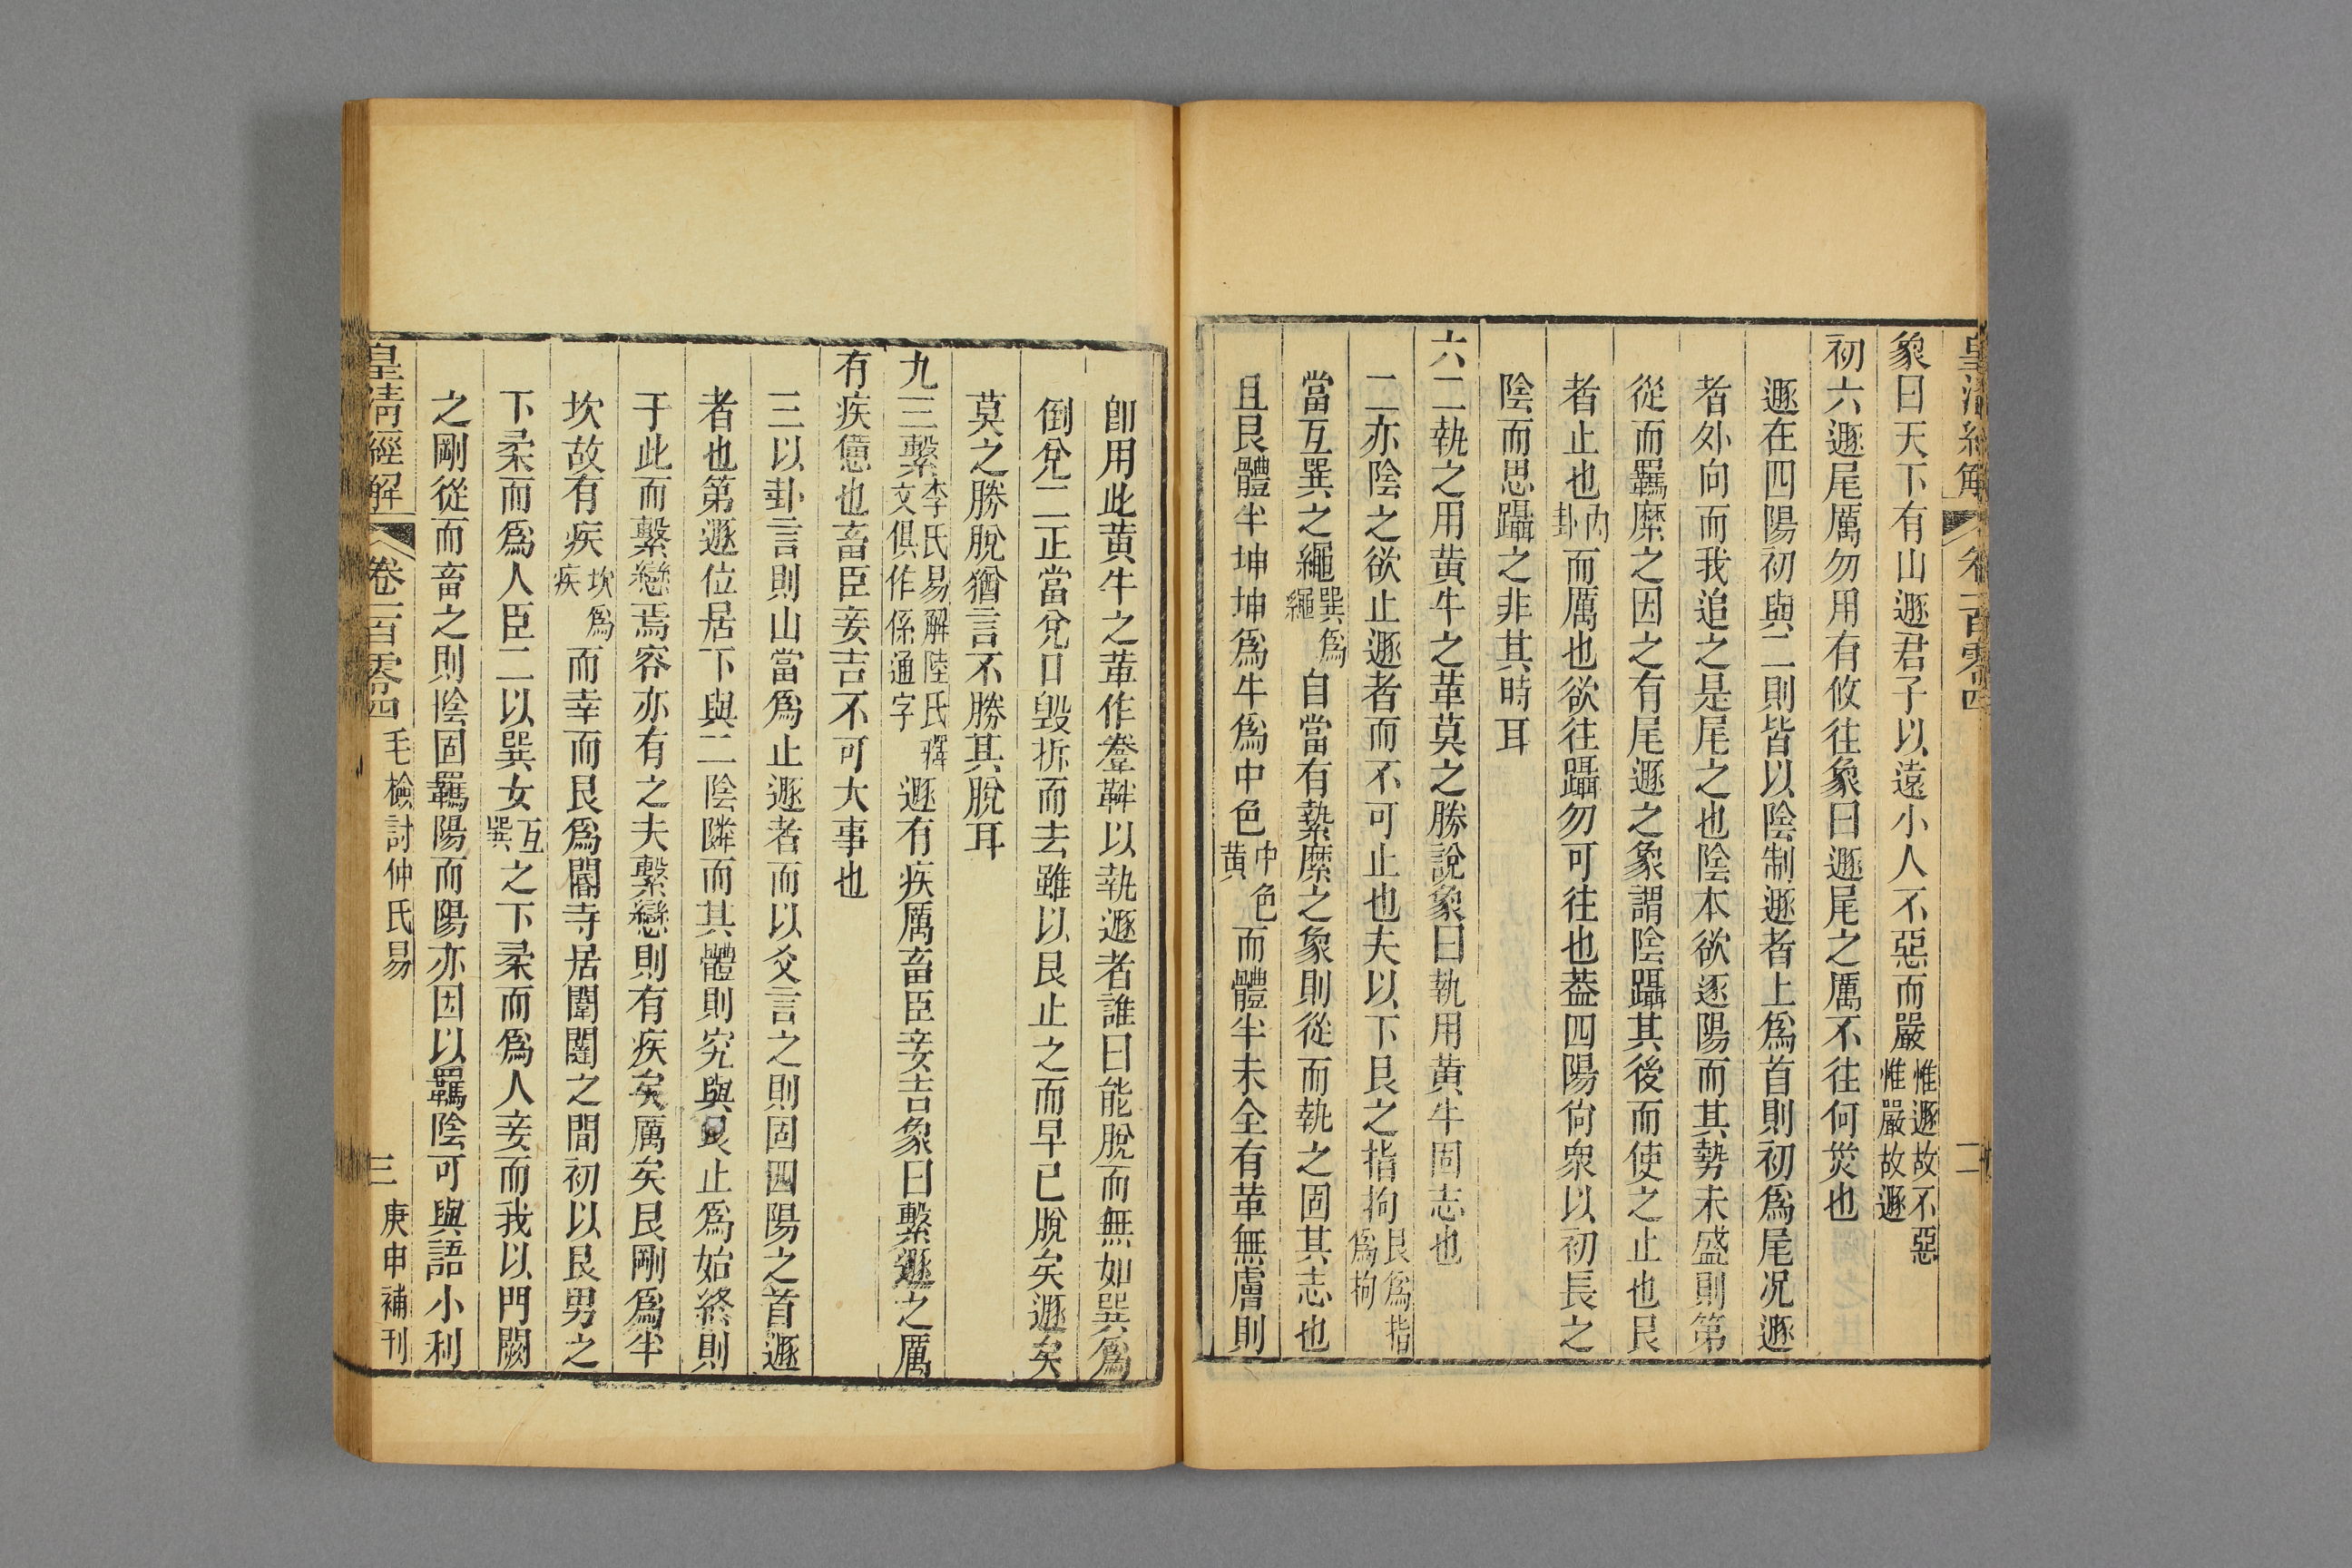 皇清經解 卷一百零四 二
象曰天下有山遯君子以遠小人不惡而嚴惟遯故不惡惟嚴故遯
初六遯尾厲勿用有攸往象曰遯尾之厲不往何災也
遯在四陽初與二則皆以陰制遯者上爲首則初爲尾况遯
者外向而我追之是尾之也陰本欲逐陽而其勢未盛則第
從而羈縻之因之有尾遯之象謂陰躡其後而使之止也艮
者止也内卦而厲也欲往躡勿可往也葢四陽尙衆以初長之
陰而思躡之非其時耳
六二執之用黄牛之革莫之勝說象曰執用黄牛固志也
二亦陰之欲止遯者而不可止也夫以下艮之指拘艮爲指爲拘
當互巽之繩巽爲繩自當有縶縻之象則從而執之固其志也
且艮體半坤坤爲牛爲中色中色黄而體半未全有革無膚則
卽用此黄牛之革作鞶鞶以執遯者誰曰能脫而無如巽爲
倒兌二正當兌口毀拆而去雖以艮止之而早已脫矣遯矣
莫之勝脫猶言不勝其脫耳
九三繫李氏易解陸氏釋文俱作係通字遯有疾厲畜臣妾吉象曰繫遯之厲
有疾憊也畜臣妾吉不可大事也
三以卦言則山當爲止遯者而以爻言之則固四陽之首遯
者也第遯位居下與二陰隣而其體則究與艮止爲始終則
于此而繫戀焉容亦有之夫繫戀則有疾矣厲矣艮剛爲半
坎故有疾坎爲疾而幸而艮爲閽寺居闈闥之間初以艮男之
下柔而爲人臣二以巽女互巽之下柔而爲人妾而我以門闕
之剛從而畜之則陰固羈陽而陽亦因以羈陰可與語小利
皇清經解 卷一百零四 毛檢討仲氏易 三 庚申補刊